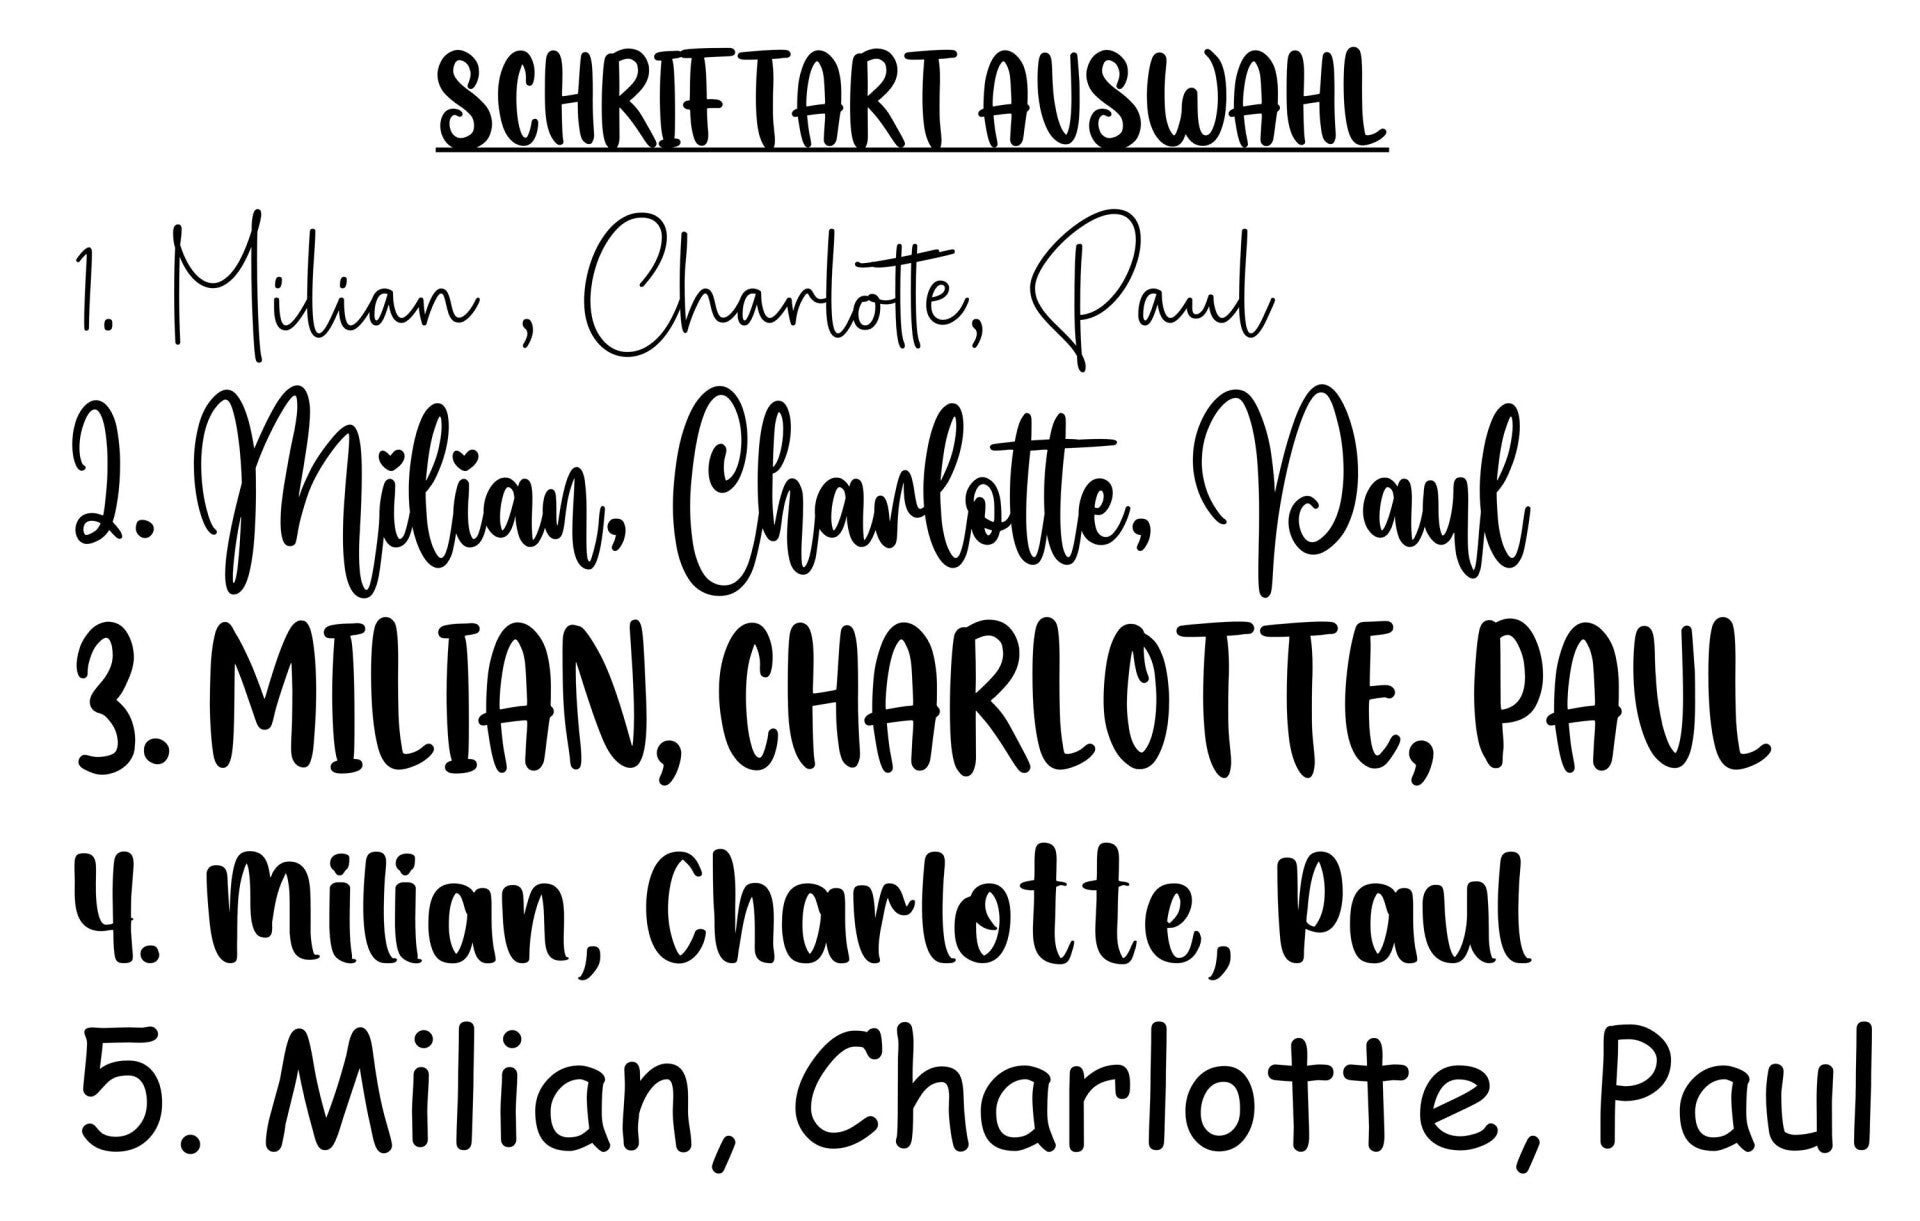 SCHRIFTART AUSWAHL
1. Milian , Charlotte, Paul
2. Milian, Charlotte, Paul
3. MILIAN, CHARLOTTE, PAUL
4. Milian, Charlotte, Paul
5. Milian, Charlotte, Paul